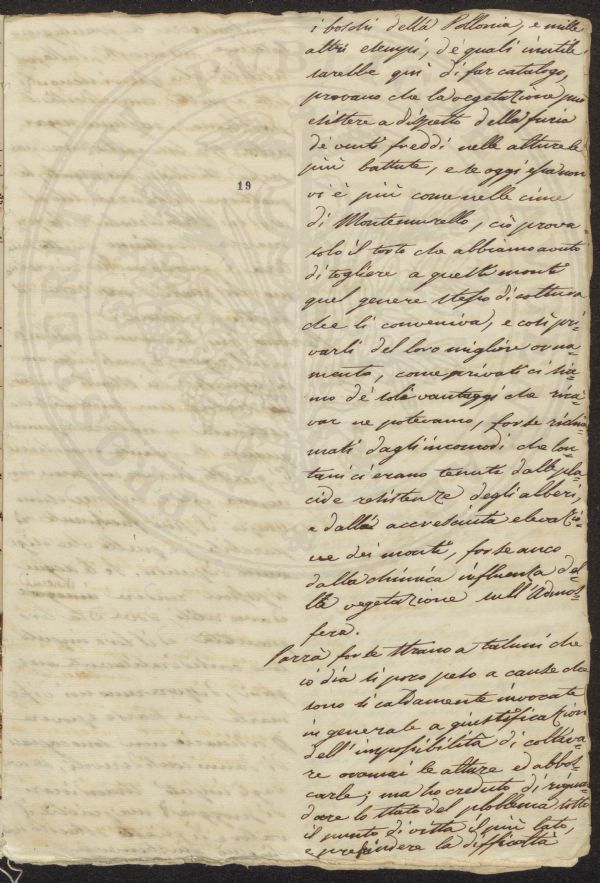 i boschi della Pollonia, e mille
altri esempi, de quali inutile
sarebbe quì di far catalogo,
provano che la vegetazione può
esistere a dispetto della furia
de venti freddi nelle alture le
più battute, e se oggi essa non
19
vi è più come nelle cime
di Montemurello, ciò prova
solo il torto che abbiamo avuto
di togliere a questi monti
quel genere stesso di coltura
che li conveniva, e così pri-
varli del loro migliore orna-
mento, come privati ci sia-
mo de soli vantaggi che rica-
var ne potevamo, forse richia-
mati dagli incomodi che lon-
tani ci erano tenuti dalle pla-
cide resistenze degli alberi,
e dalla accresciuta elevazio-
ne dei monti, forse anco
dalla chimica influenza del-
la vegetazione sull'Atmos-
fera.
Parrà forse strano a taluni che
io dia sì poco peso a cause che
sono sì caldamente invocate
in generale a giustificazione
dell'impossibilità di coltiva-
re oramai le alture ed abbos-
carle; ma ho creduto di rigua-
dare lo stato del problema sotto
il punto di vista il più lato,
e prendere la difficoltà